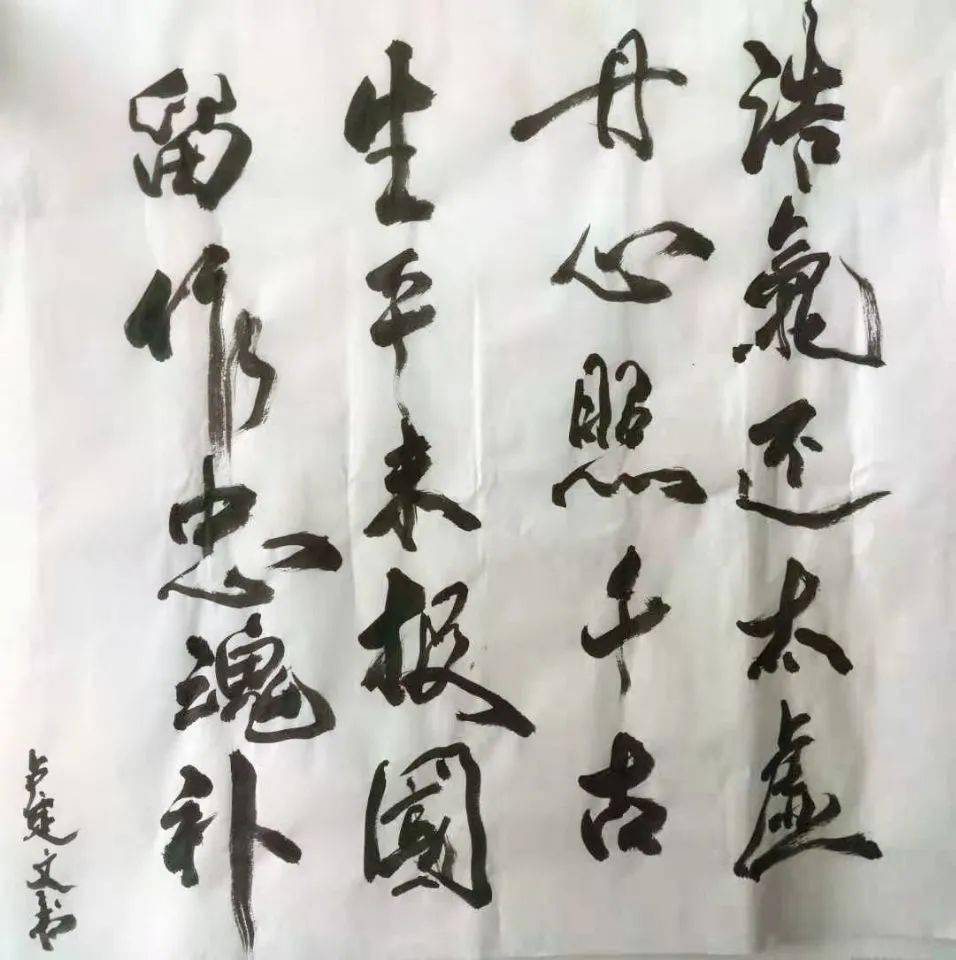 浩氣还太虚
丹心照千古
生平未报國
留作忠魂补
卢建文书